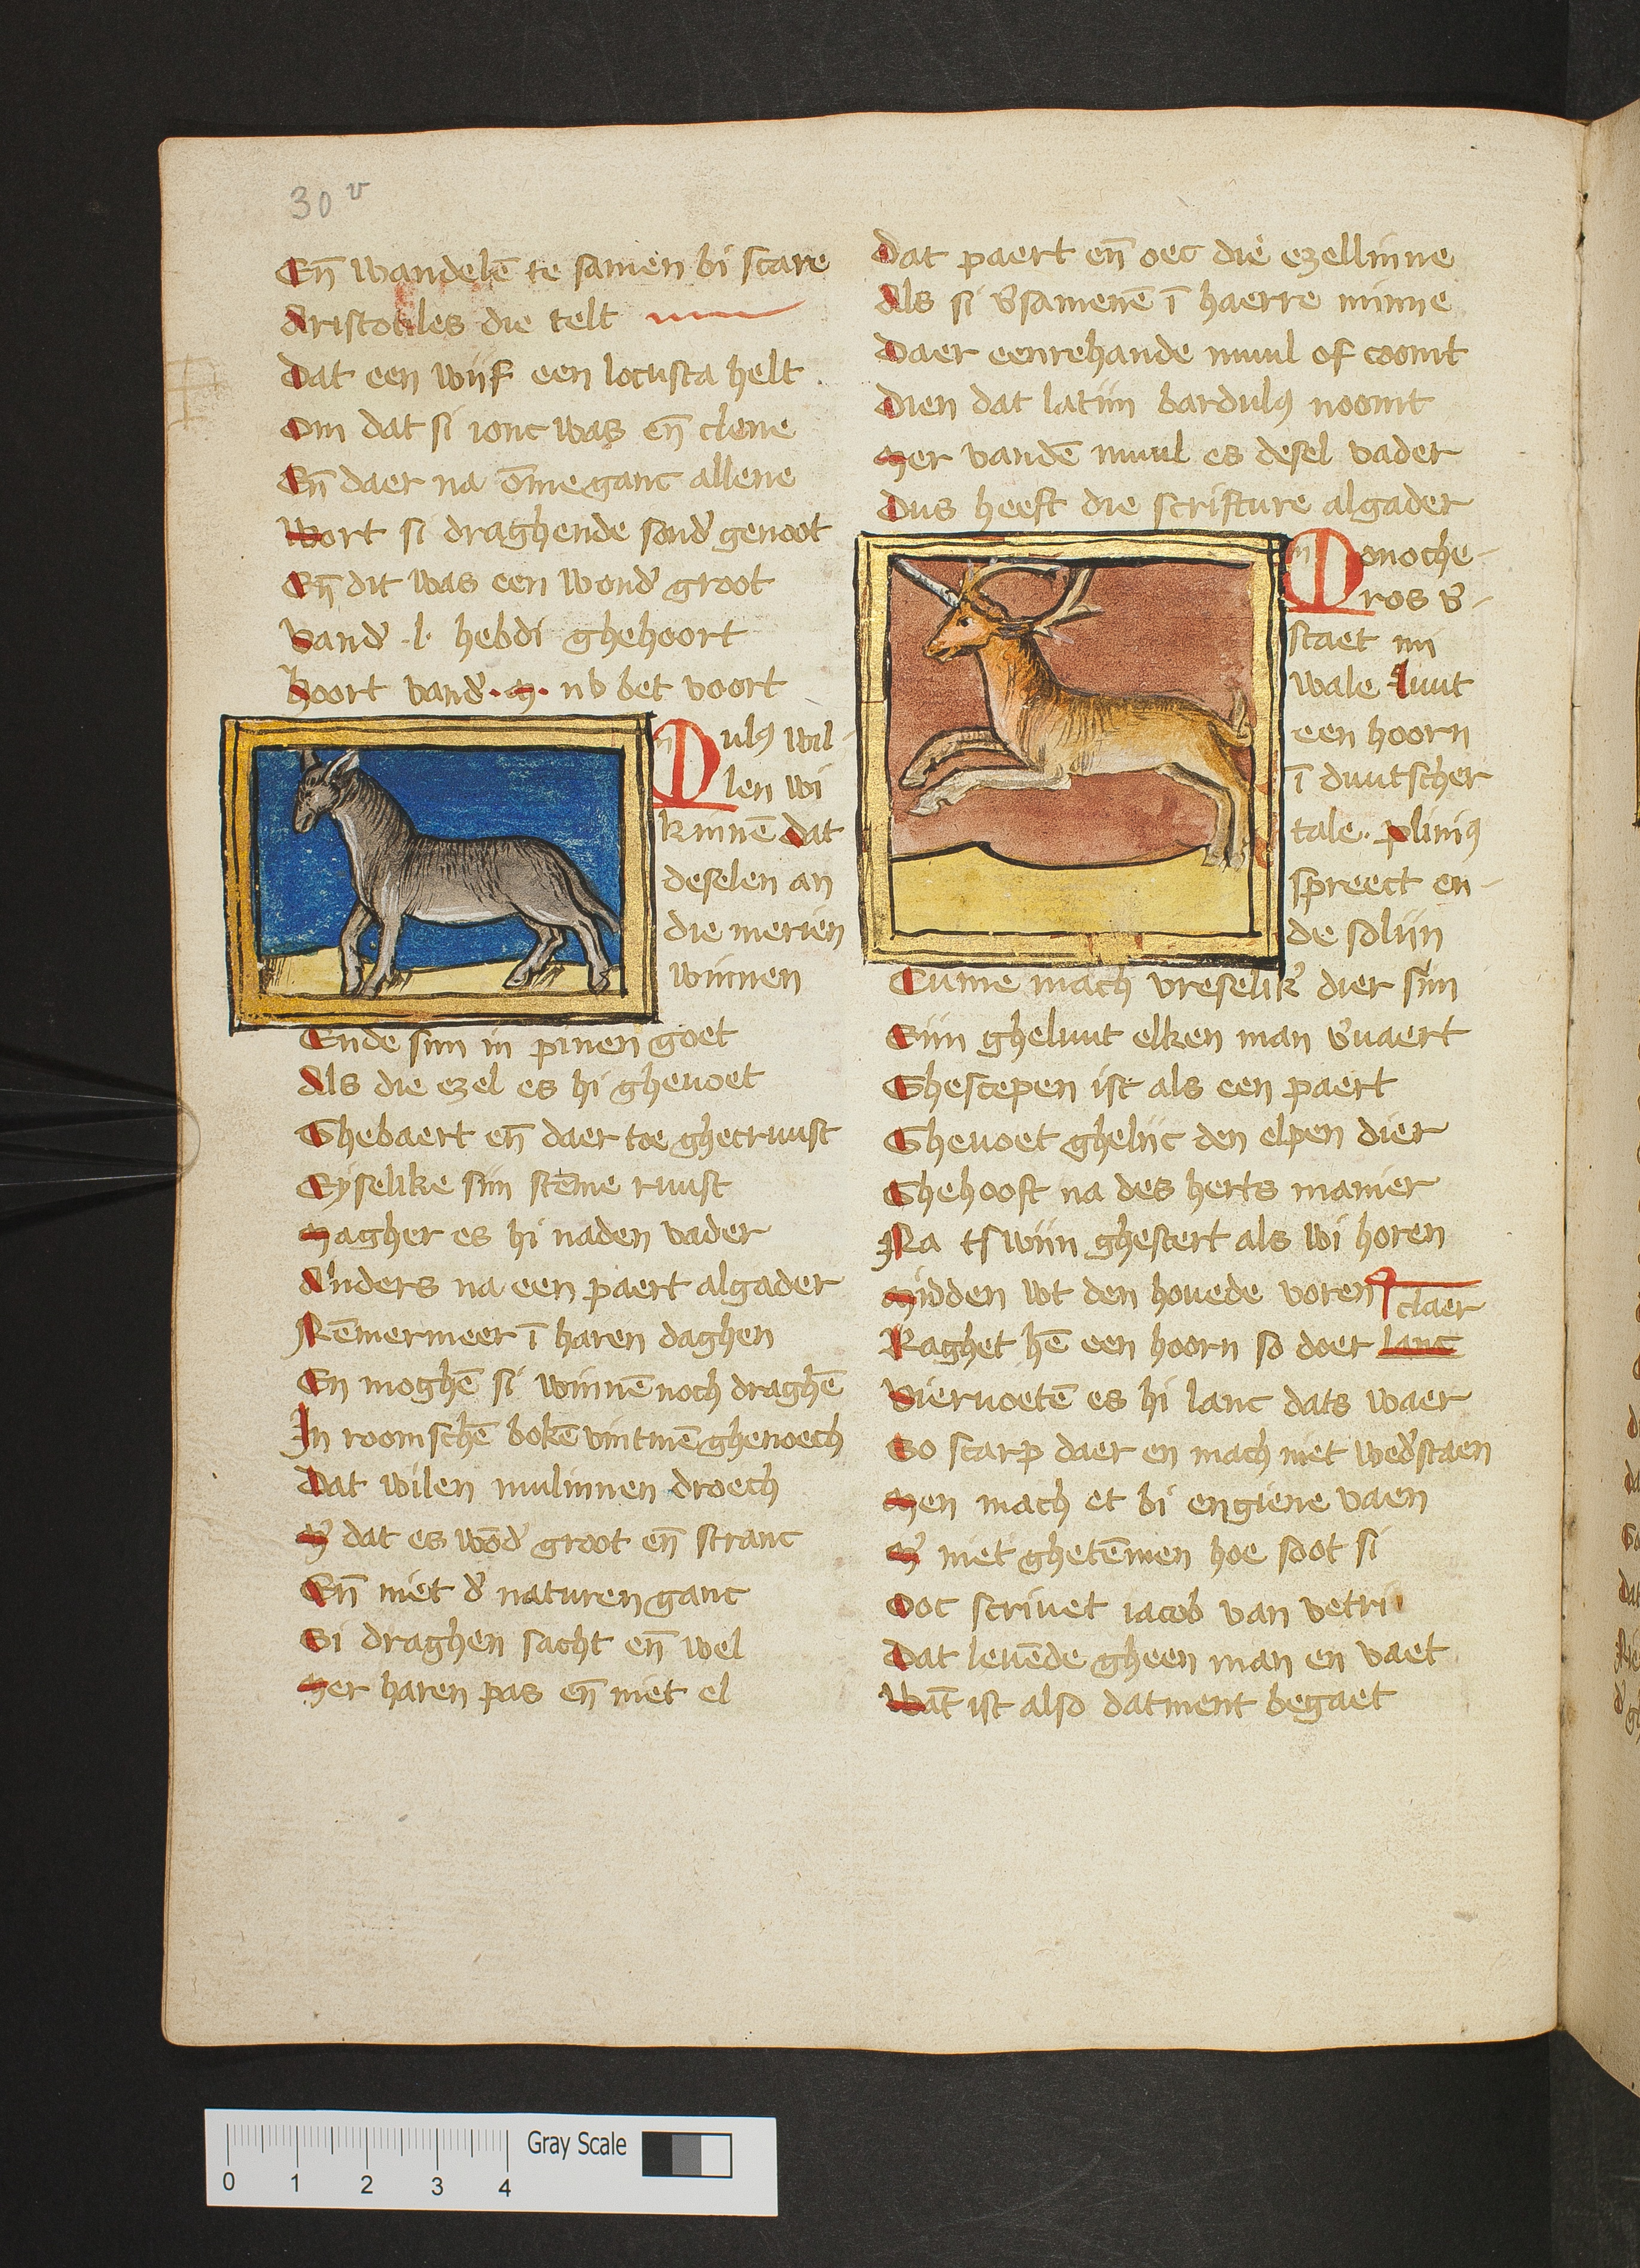 30 v
En̄ wandelē te samen bi scare
Aristotiles die telt
Dat een wijf een locusta helt
Om dat si ionc was en̄ clene
En̄ daer na ōme ganc allene
Wort si draghende sond' genoot
En̄ dit was een wond' groot
Vand' .l. hebdi ghehoort
Hoort vand'. M. nv bet voort
Mulꝰ wil-
len wi
kinnē dat
deselen an
die merien
winnen
Ende sijn in pinen goet
Als die ezel es hi ghevoet
Ghebaert en̄ daer toe ghecruust
Eyselike sijn stēme ruust
Magher es hi naden vader
Anders na een paert algader
Nēmermeer ī haren daghen
En moghē si winnē noch draghē
In roomschē bokē vintmē ghenoech
Dat wilen mulinnen droech
M' dat es wōd' groot en̄ stranc
En̄ niet d' naturen ganc
Si draghen sacht en̄ wel
Mer haren pas en̄ niet el
Dat paert en̄ oec die ezellinne
Als si v'samenē ī haerre minne
Daer eenrehande muul of coomt
Dien dat latijn bardulꝰ noomt
Mer vandē muul es desel vader
Dus heeft die scrifture algader
Monoche-
ros v'-
staet mi
wale Luut
een hoorn
ī duutscher
tale. Pliniꝰ
spreect en-
de solijn
Cume mach vreselik' dier sijn
Sijn gheluut elken man v'vaert
Ghescepen ist als een paert
Ghevoet ghelijc den elpen dier
Ghehooft na des herts manier
Na tswijn ghestert als wi horen
Midden wt den hovede voren
claer
Raghet hē een hoorn so doer lanc
Viervoetē es hi lanc dats waer
So scarp daer en mach niet wed'staen
Men mach et bi engiene vaen
M' niet ghetēmen hoe soot si
Ooc scrivet iacob van vetri
Dat levēde gheen man en vaet
Wat̄ ist also datment begaet
Gray Scale
0 1 2 3 4